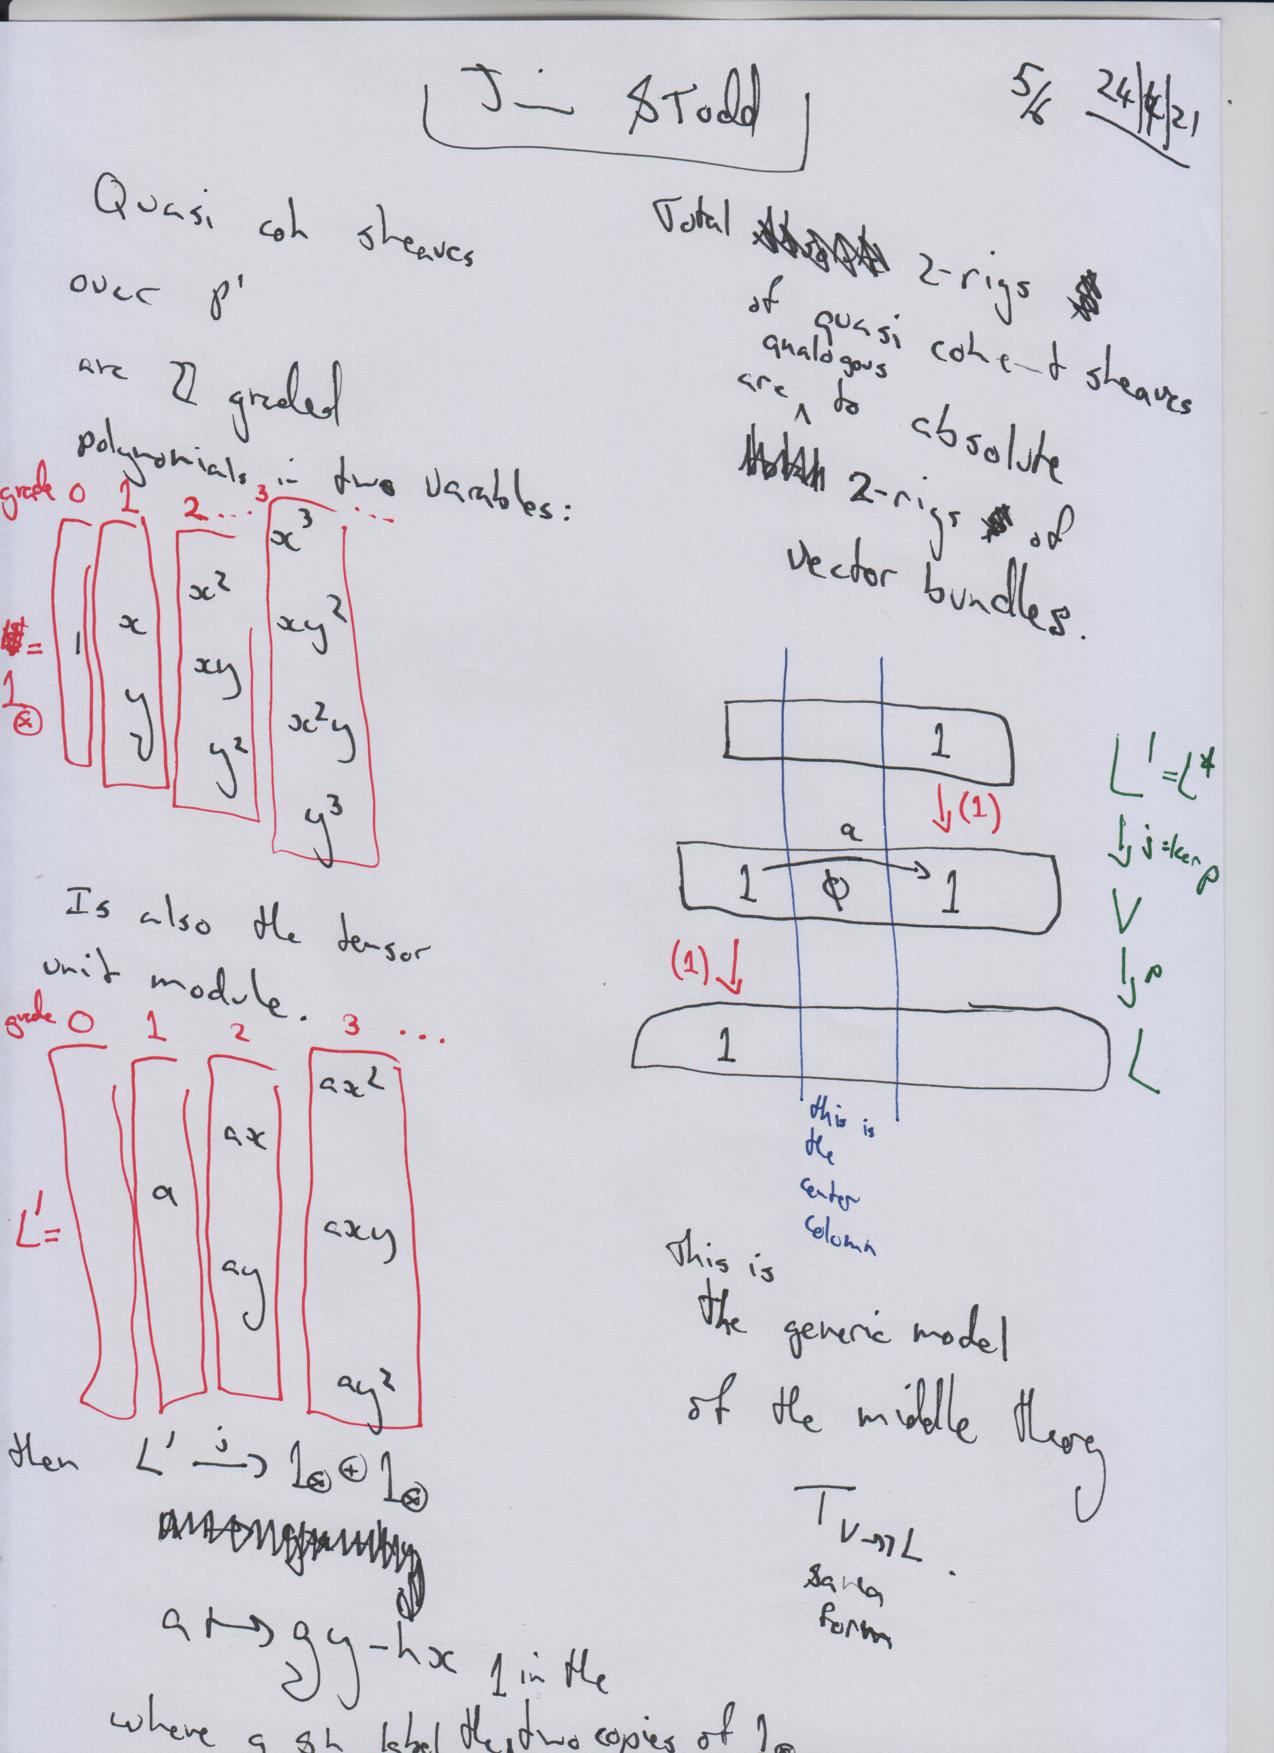 Jim & Todd
5/6 24/4/21
Quasi coh sheaves
over P'
are ℤ graded
polynomials in two varables:
grade 0 1 2 ... 3 ...
= 1⊗
1
x
y
x²
xy
y²
x³
xy²
x²y
y³
Is also the tensor
unit module.
grade 0 1 2 3 ...
L' =
a
ax
ay
ax²
axy
ay²
then L' j→ 1⊗ ⊕ 1⊗
a ↦ gy - hx
1 in the
where g & h label the two copies of 1⊗
Total 2-rigs
of quasi coherent sheaves
analogous
are ^ to absolute
2-rigs of
vector bundles.
1
↓ (1)
a
1 → 1
(1) ↓
1
L' = L*
↓ j = ker p
V
↓ p
L
this is
the
center
column
This is
the generic model
of the middle theory
T V↠L.
form